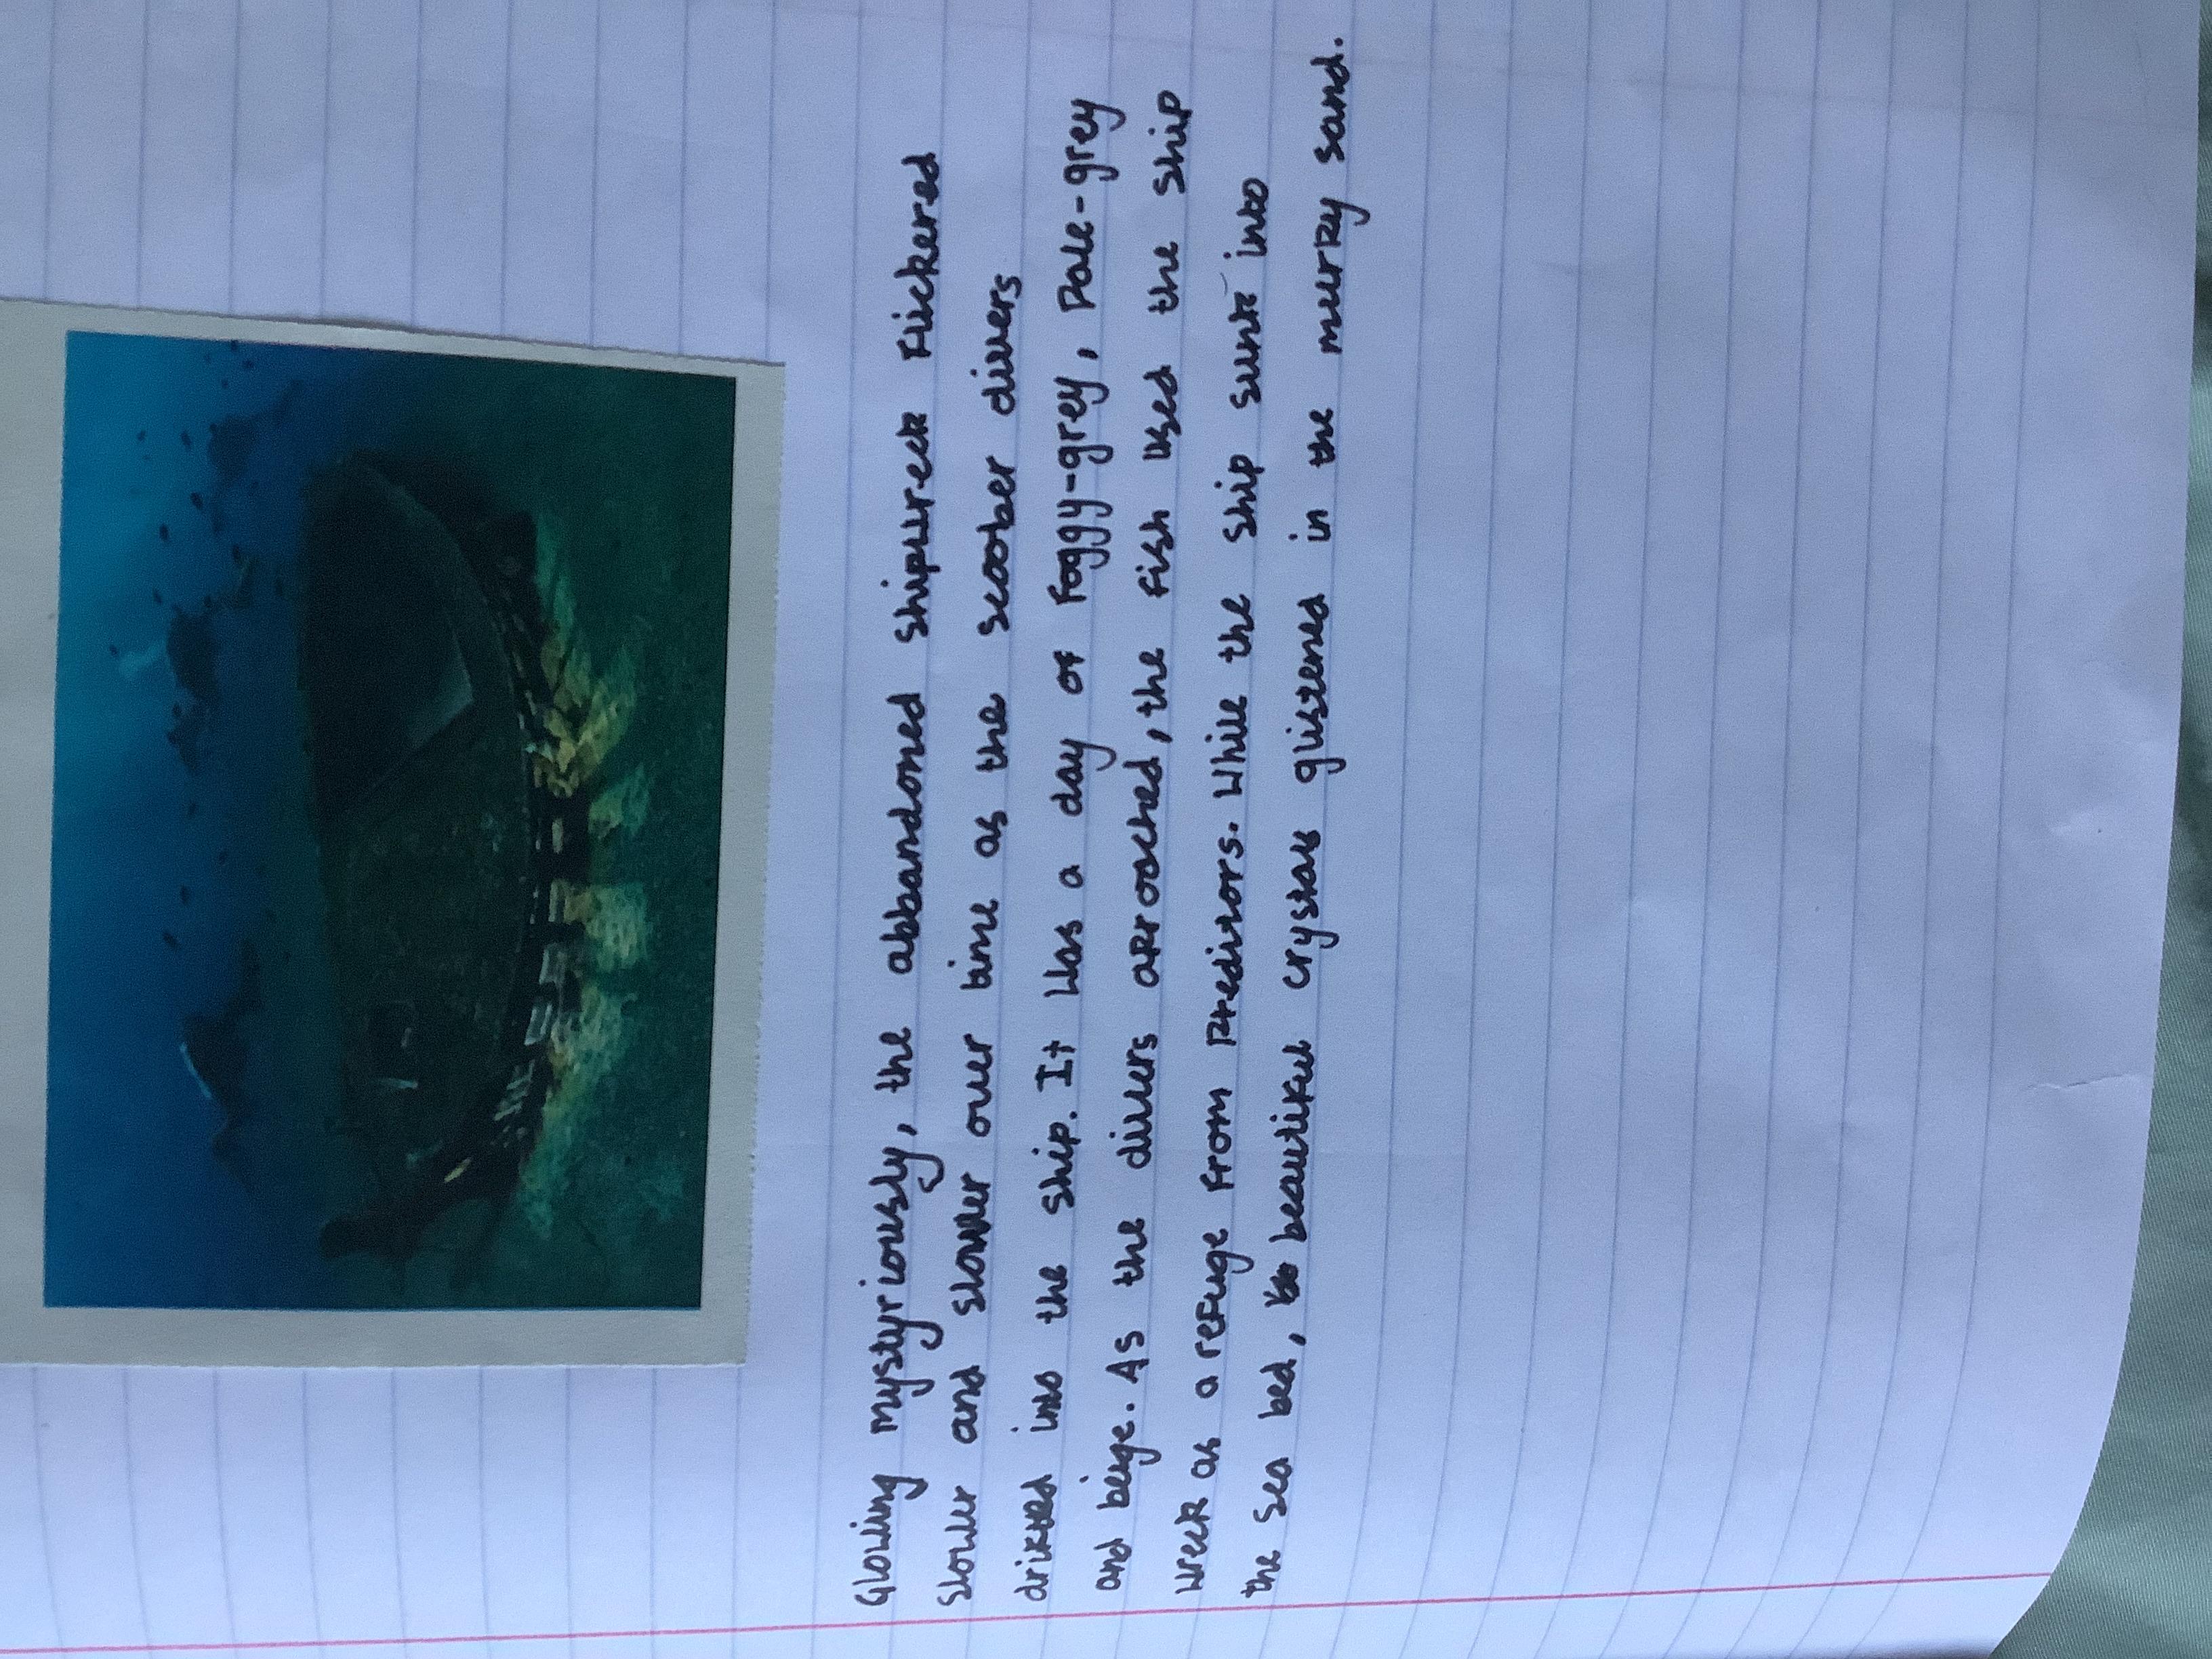 Glowing mystyriously, the abbandoned shipwreck flickered
slower and slower over time as the scoober divers
drifted into the ship. It was a day of foggy-grey, pale-grey
and beige. As the divers approched, the fish used the ship
wreck as a refuge from preditors. While the ship sunk into
the sea bed, beautiful crystals glistened in the murky sand.